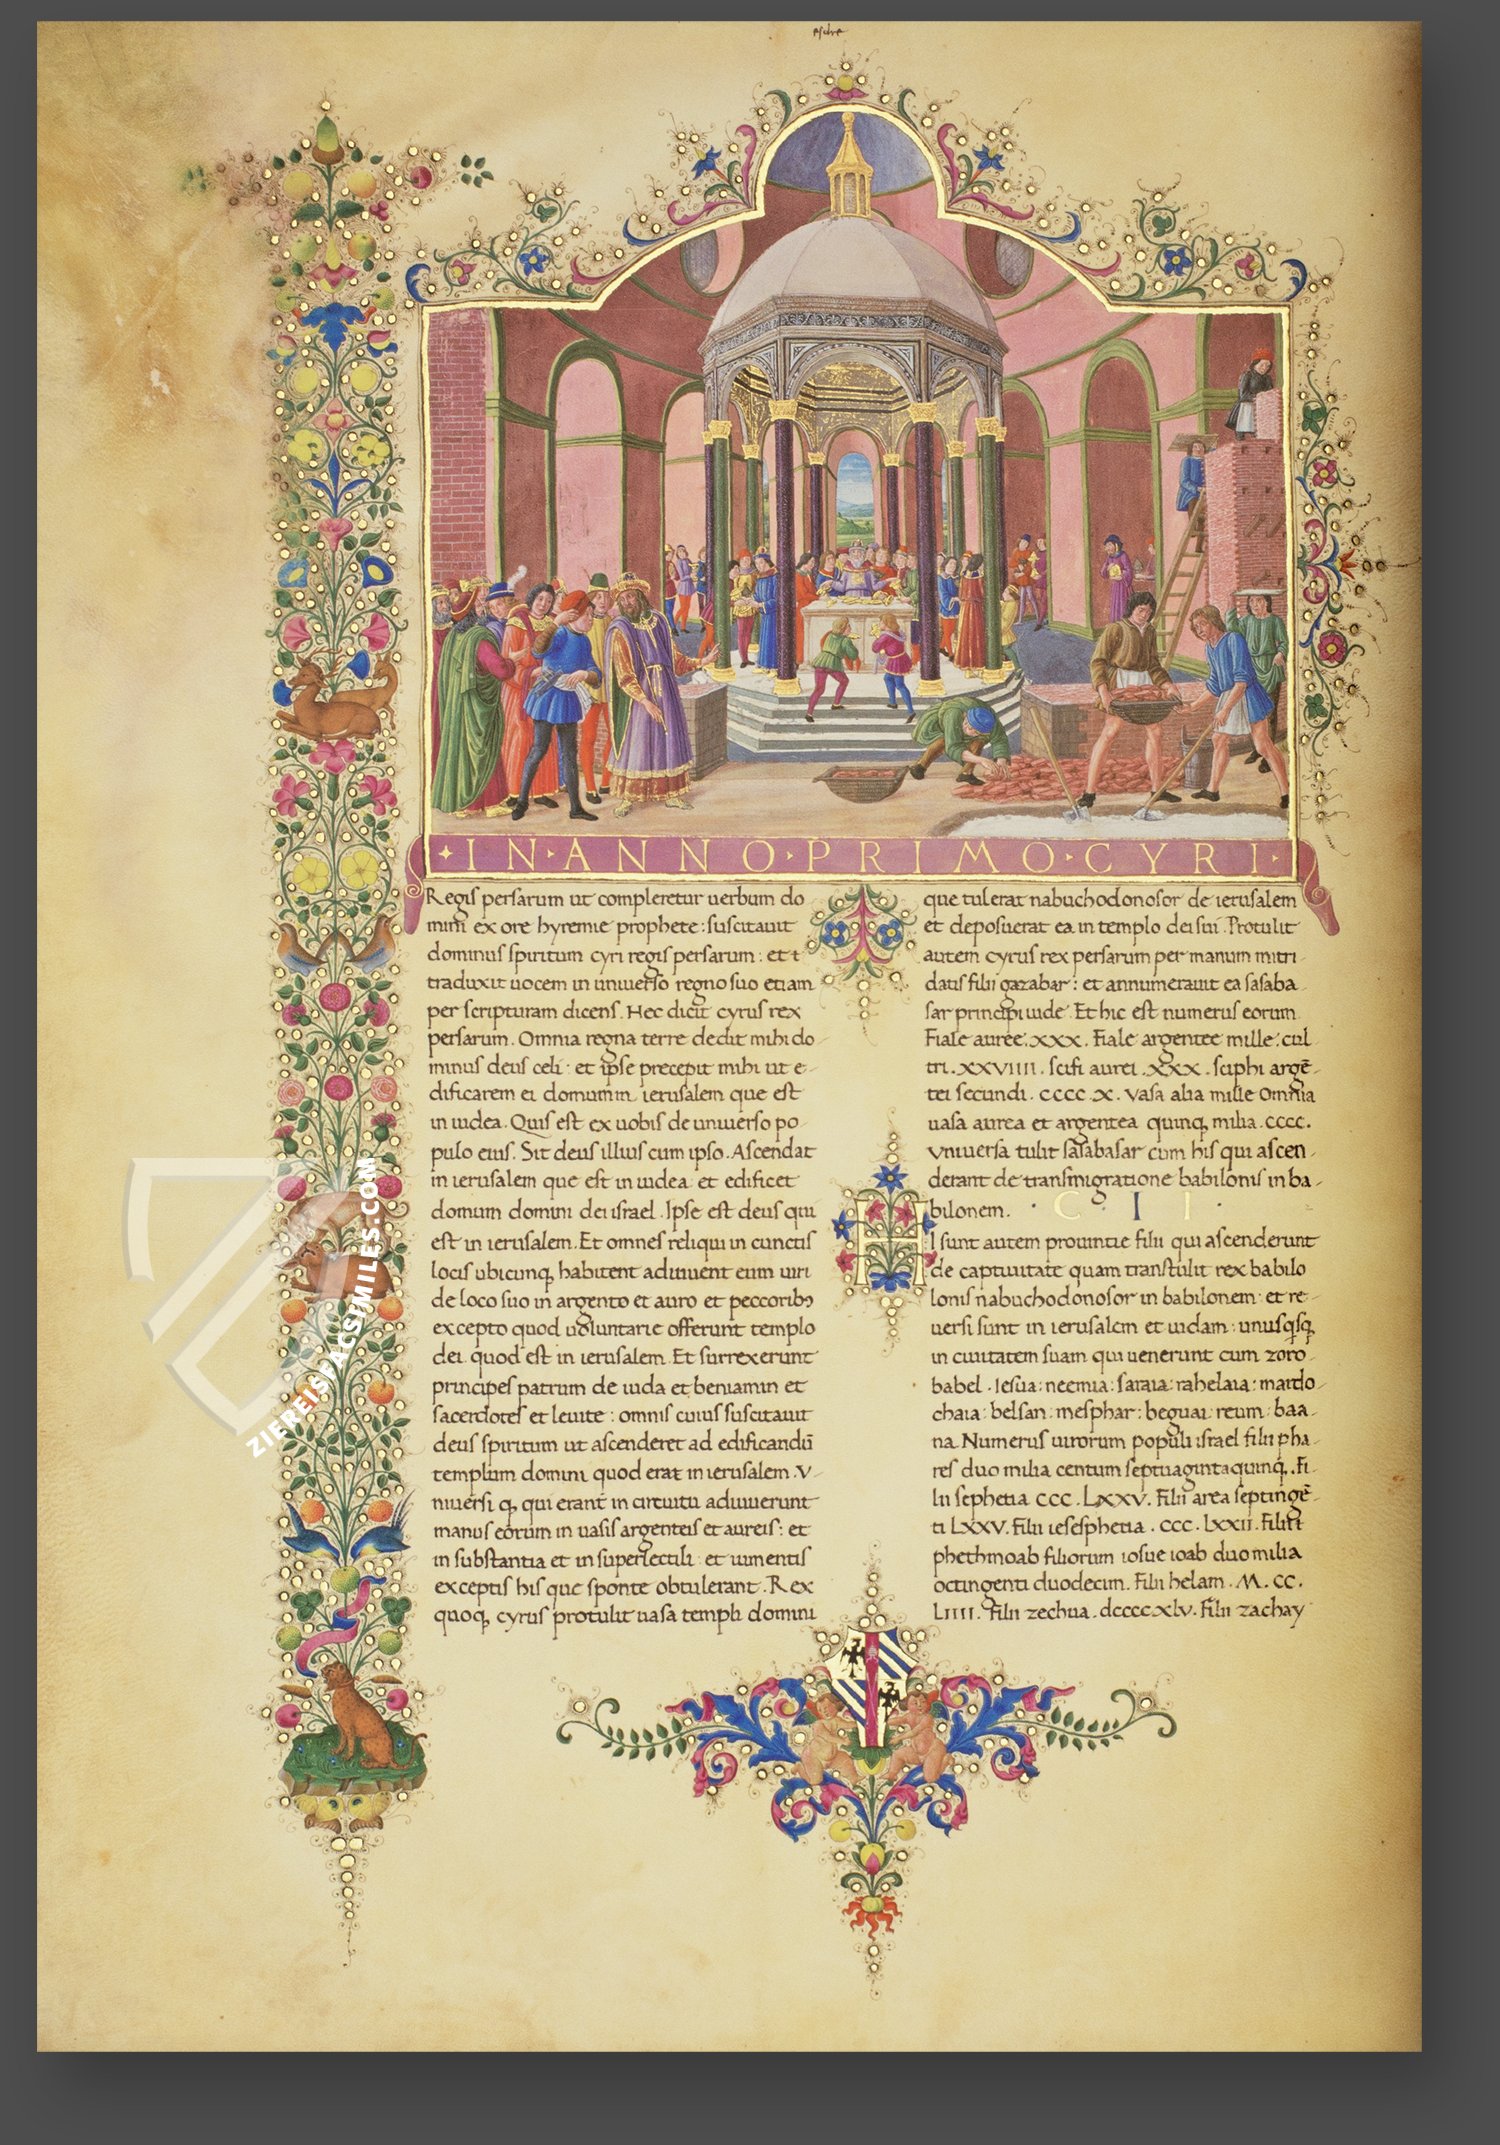 esdre
·IN·ANNO·PRIMO·CYRI·
Regis persarum ut compleretur uerbum do
mini ex ore hyremie prophete: suscitauit
dominus spiritum cyri regis persarum: et t
traduxit uocem in uniuerso regno suo etiam
per scripturam dicens. Hec dicit cyrus rex
persarum. Omnia regna terre dedit mihi do
minus deus celi: et ipse precepit mihi ut e-
dificarem ei domum in ierusalem que est
in iudea. Quis est ex uobis de uniuerso po
pulo eius. Sit deus illius cum ipso. Ascendat
in ierusalem que est in iudea et edificet
domum domini dei israel. Ipse est deus qui
est in ierusalem. Et omnes reliqui in cunctis
locis ubicunq; habitent adiuuent eum uiri
de loco suo in argento et auro et peccoribꝰ
excepto quod uoluntarie offerunt templo
dei quod est in ierusalem. Et surrexerunt
principes patrum de iuda et beniamin et
sacerdotes et leuite: omnis cuius suscitauit
deus spiritum ut ascenderet ad edificandū
templum domini quod erat in ierusalem. V-
niuersi q; qui erant in circuitu adiuuerunt
manus eorum in uasis argenteis et aureis: et
in substantia et in superlectili: et iumentis
exceptis his que sponte obtulerant. Rex
quoq; cyrus protulit uasa templi domini
que tulerat nabuchodonosor de ierusalem
et deposuerat ea in templo dei sui. Protulit
autem cyrus rex persarum per manum mitri-
datis filii gazabar: et annumerauit ea sasaba-
sar principi iude. Et hic est numerus eorum.
Fiale auree. xxx. Fiale argentee mille: cul-
tri. xxviiii. scifi aurei. xxx. sciphi argē-
tei secundi. cccc x. Vasa alia mille Omnia
uasa aurea et argentea quinq; milia. cccc.
Vniuersa tulit sasabasar cum his qui ascen-
derant de transmigratione babilonis in ba-
bilonem. · C I I ·
HI sunt autem prouintie filii qui ascenderunt
de captiuitate quam transtulit rex babilo
lonis nabuchodonosor in babilonem: et re-
uersi sunt in ierusalem et iudam: unusq̃sq;
in ciuitatem suam qui uenerunt cum zoro-
babel. Iesua: neemia: saraia: rahelaia: mardo-
chaia: belsan: mesphar: beguai: reum: baa-
na. Numerus uirorum populi israel filii pha-
res duo milia centum septuagintaquinq;. Fi-
lii sephetia ccc. Lxxv. Filii area septingē-
ti Lxxv. Filii iesesphetia. ccc. Lxxii. Filii t
phethmoab filiorum iosue ioab duo milia
octingenti duodecim. Filii helam. M. CC.
Liiii. Filii zechua. dccccxlv. Filii zachay
ZIEREIS FACSIMILES.COM